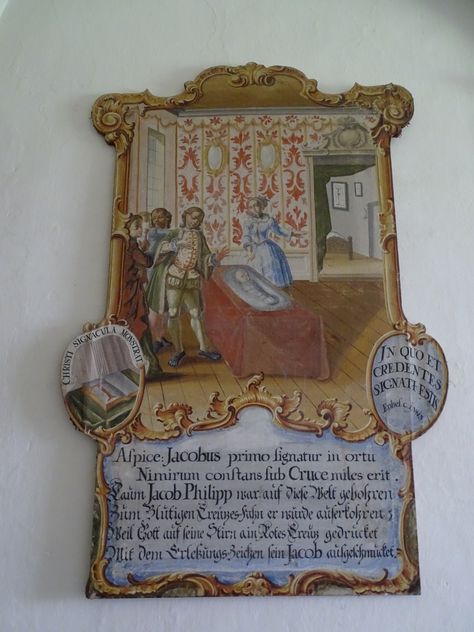 CHRISTI SIGNACULA MONSTRAT
JN QUO ET
CREDENTES
SIGNATI ESTIS
Ephes. c.
Aspice: Jacobus primo signatur in ortu
Nimirum constans sub Cruce miles erit.
Kaum Jacob Philipp war auf diese Welt gebohren
Zum Blutigen Creutzes-Fahn er wurde auserkohren;
Weil Gott auf seine Stirn ain Rotes Creutz gedrucket
Mit dem Erlesungs-Zeichen sein Jacob ausgeschmücket.